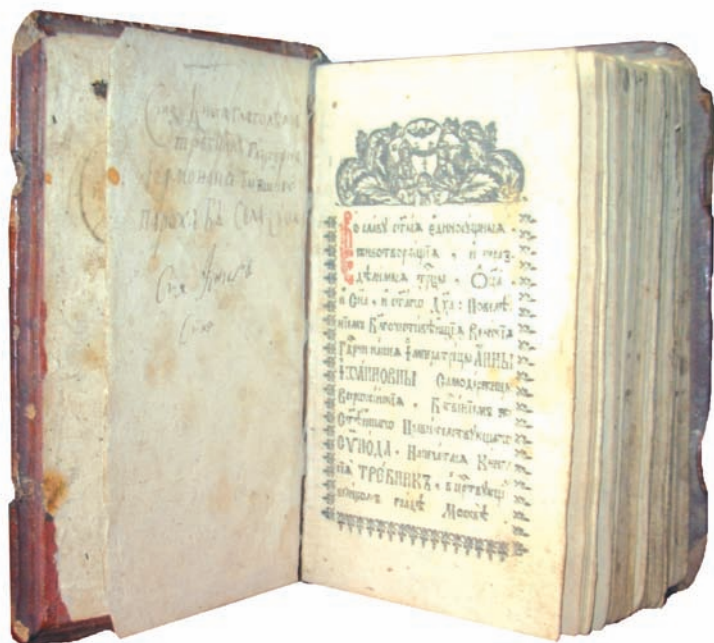 Сия Книга
Сия Книга
Сию
Во славу ст҃ыѧ единосꙋщныѧ
животворѧщїѧ, и нераз̾
дѣлимыѧ трⷪ҇цы, Ѻц҃а,
и Сн҃а, и ст҃агѡ Дх҃а: Повелѣ
нїемъ Бл҃гочестивѣйшїѧ Великїѧ
Гдⷭ҇рни нашеѧ Імператрицы АННЫ
ІѠАННОВНЫ Самодержицы
Всерѡссїйскїѧ, Бл҃гвенїемъ же
Ст҃ѣйшагѡ Правителствꙋющагѡ
СѴНОДА, Напечатасѧ Книга
сїѧ ТРЕБНИКЪ, въ цр҃ствꙋющемъ
великомъ градѣ Москвѣ